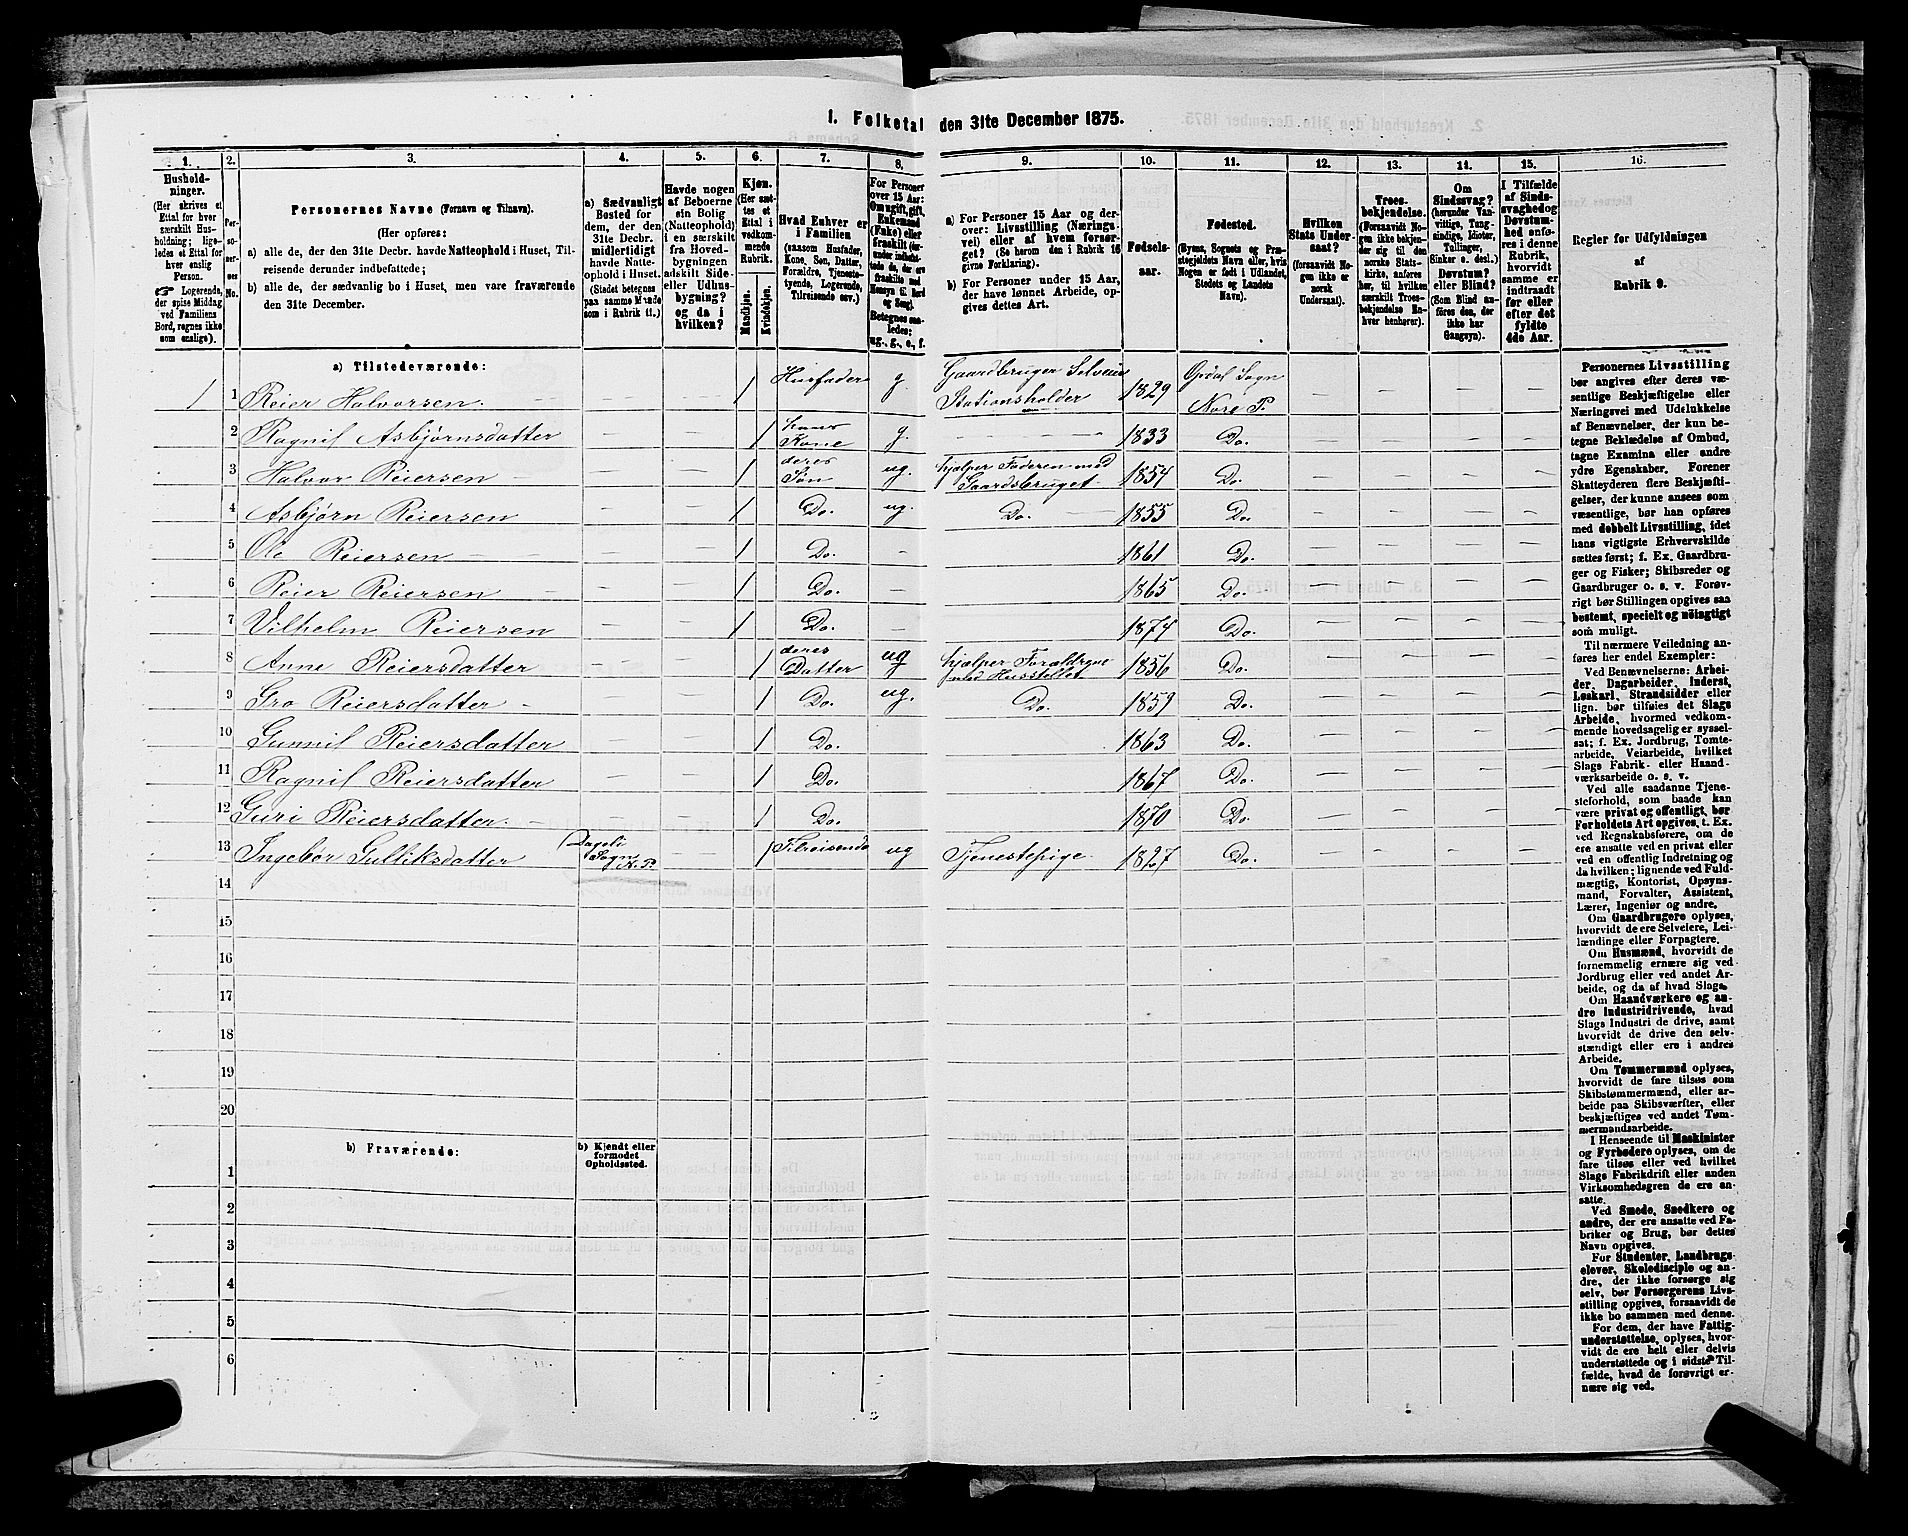 1. Folketal den 31te December 1875.
1.
Hushold-
ninger.
(Her skrives et
Ettal for hver
særskilt Hus-
holdning; lige-
ledes et Ettal for
hver enslig
Person.
☞ Logerende,
der spise Middag
ved Familiens
Bord, regnes ikke
som enslige).
2.
Per-
so-
ner-
nes
No.
3.
Personernes Navne (Fornavn og Tilnavn).
(Her opføres:
a) alle de, der den 31te Decbr. havde Natteophold i Huset, Til-
reisende derunder indbefattede;
b) alle de, der sædvanlig bo i Huset, men vare fraværende
den 31te December.
4.
a) Sædvanligt
Bosted for
dem, der den
31te Decbr.
midlertidigt
havde Natte-
ophold i Huset.
(Stedet betegnes
paa samme Maade
som i Rubrik 11.)
5.
Havde nogen
af Beboerne
sin Bolig
(Natteophold)
i en særskilt
fra Hoved-
bygningen
adskilt Side-
eller Udhus-
bygning?
og da i
hvilken?
6.
Kjøn.
(Her sæt-
tes et
Ettal i
vedkom-
mende
Rubrik.
Mandkjøn.
Kvindekjøn.
7.
Hvad Enhver er
i Familien
(saasom Husfader,
Kone, Søn, Datter,
Forældre, Tjeneste-
tyende, Logerende,
Tilreisende osv.)
8.
For Personer
over 15 Aar:
Om ugift, gift,
Enkemand
(Enke) eller
fraskilt
Betegnes saa-
ledes:
ug., g., e., f.
9.
a) For Personer 15 Aar og der-
over: Livsstilling (Nærings-
vei) eller af hvem forsør-
get? (Se herom den i Rubrik 16
givne Forklaring).
b) For Personer under 15 Aar,
der have lønnet Arbeide, op-
gives dettes Art.
10.
Fødsels-
aar.
11.
Fødested.
(Byens, Sognets og Præ-
stegjeldets Navn eller, hvis
Nogen er født i Udlandet,
Stedets og Landets
Navn).
12.
Hvilken
Stats Under-
saat?
(forsaavidt No-
gen ikke er
norsk
Undersaat).
13.
Troes-
bekjendelse.
(Forsaavidt No-
gen ikke bekjen-
der sig til den
norske Stats-
kirke, anføres
her, til hvilken
særskilt Troes-
bekjendelse En-
hver henhører).
14.
Om
Sindssvag?
(herunder Van-
vittige, Tung-
sindige, Idioter,
Tullinger,
Sinker o. desl.)
Døvstum?
eller Blind?
(Som Blind an-
føres den, der
ikke har
Gangsyn).
15.
I Tilfælde
af Sinds-
svaghed og
Døvstum-
hed anfø-
res i denne
Rubrik,
hvorvidt
samme er
indtraadt
før eller
efter det
fyldte
4de Aar.
16.
Regler for Udfyldningen
af
Rubrik 9.
a) Tilstedeværende:
1 1 Reier Halvorsen. — — — 1 Husfader g. Gaardbruger Selveier Stationsholder 1829 Opdal Sogn Nore P. — — — —
2 Ragnil Asbjørnsdatter — — 1 hans Kone g. — — — — 1833 Do. — — — —
3 Halvor Reiersen — — — 1 deres Søn ug. hjælper Faderen med Gaardsbruget 1854 Do. — — — —
4 Asbjørn Reiersen — — 1 Do. ug. Do. — 1855 Do. — — — —
5 Ole Reiersen — — — — 1 Do. — 1861 Do. — — — —
6 Reier Reiersen — — — 1 Do. — 1865 Do. — — — —
7 Vilhelm Reiersen — — 1 Do. 1874 Do. — — — —
8 Anne Reiersdatter — — — 1 deres Datter ug hjælper Forældrene med Husstellet 1856 Do. — — — —
9 Gro Reiersdatter — — — 1 Do. ug. Do. 1859 Do. — — — —
10 Gunnil Reiersdatter — — 1 Do. 1863 Do. — — — —
11 Ragnil Reiersdatter — — 1 Do. 1867 Do. — — — —
12 Guri Reiersdatter. — — — 1 Do. 1870 Do. — — — —
13 Ingebør Gulliksdatter Dagali Sogn N. P. — 1 Tilreisende ug Tjenestepige 1827 Do. — — — —
14
15
16
17
18
19
20
b) Fraværende:
b) Kjendt eller
formodet
Opholdssted.
1
2
3
4
5
6
Personernes Livsstilling
bør angives efter deres væ-
sentlige Beskjæftigelse eller
Næringsvei med Udelukkelse
af Benævnelser, der kun be-
tegne Beklædelse af Ombud,
tagne Examina eller andre
ydre Egenskaber. Forener
Skatteyderen flere Beskjæfti-
gelser, der kunne ansees som
væsentlige, bør han opføres
med dobbelt Livsstilling, idet
hans vigtigste Erhvervskilde
sættes først; f. Ex. Gaardbru-
ger og Fisker; Skibsreder og
Gaardbruger o. s. v. Forøv-
rigt bør Stillingen opgives saa
bestemt, specielt og nøiagtigt
som muligt.
Til nærmere Veiledning an-
føres her endel Exempler:
Ved Benævnelserne: Arbei-
der, Dagarbeider, Inderst,
Løskarl, Strandsidder eller
lign. bør tilføies det Slags
Arbeide, hvormed vedkom-
mende hovedsagelig er syssel-
sat; f. Ex. Jordbrug, Tomte-
arbeide, Veiarbeide, hvilket
Slags Fabrik- eller Haand-
værksarbeide o. s. v.
Ved alle saadanne Tjene-
steforhold, som baade kan
være privat og offentligt, bør
Forholdets Art opgives, t. Ex.
ved Regnskabsførere, om de
ere ansatte ved en privat eller
ved en offentlig Indretning og
da hvilken; lignende ved Fuld-
mægtig, Kontorist, Opsyns-
mand, Forvalter, Assistent,
Lærer, Ingeniør og andre.
Om Gaardbrugere oplyses,
hvorvidt de ere Selveiere, Lei-
lændinge eller Forpagtere.
Om Husmænd, hvorvidt de
fornemmelig ernære sig ved
Jordbrug eller ved andet Ar-
beide, og da af hvad Slags.
Om Haandværkere og an-
dre Industridrivende, hvad
Slags Industri de drive, samt
hvorvidt de drive den selv-
stændigt eller ere i andres
Arbeide.
Om Tømmermænd oplyses,
hvorvidt de fare tilsøs som
Skibstømmermænd, eller ar-
beide paa Skibsværfter, eller
beskjæftiges ved andet Tøm-
mermandsarbeide.
I Henseende til Maskinister
og Fyrbødere oplyses, om de
fare tilsøs eller ved hvilket
Slags Fabrikdrift eller anden
Virksomhedsgren de ere an-
satte.
Ved Smede, Snedkere og
andre, der ere ansatte ved Fa-
briker og Brug, bør dettes
Navn opgives.
For Studenter, Landbrugs-
elever, Skoledisciple og an-
dre, der ikke forsørge sig
selv, bør Forsørgerens Livs-
stilling opgives, forsaavidt de
ikke bo sammen med denne.
For dem, der have Fattig-
understøttelse, oplyses, hvor-
vidt de ere helt eller delvis
understøttede og i sidste Til-
fælde, hvad de forøvrigt er-
nære sig ved.